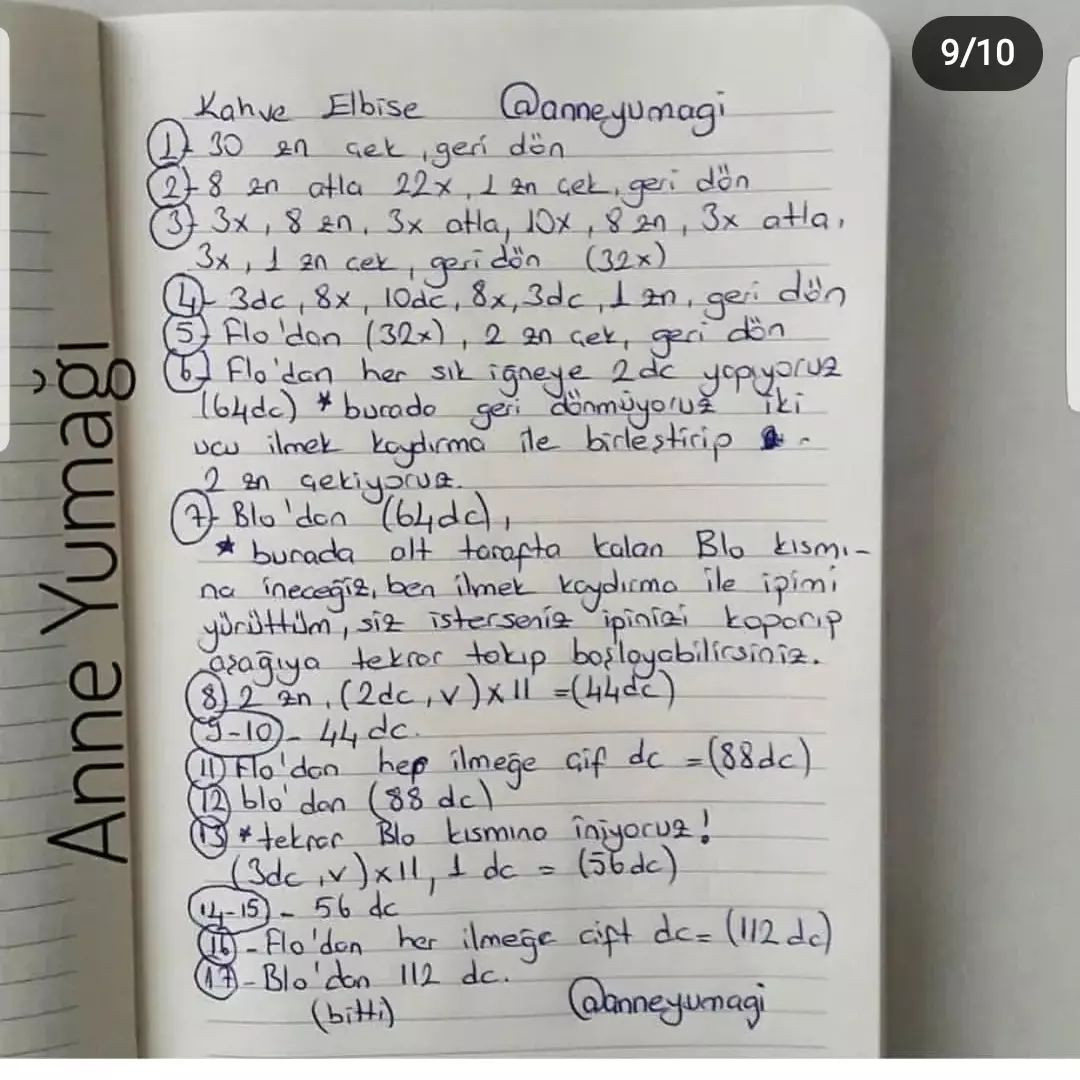 9/10
Kahve Elbise @anneyumagi
1)- 30 zn çek, geri dön
2)- 8 zn atla 22x, 1 zn çek, geri dön
3)- 3x, 8 zn, 3x atla, 10x, 8 zn, 3x atla,
3x, 1 zn çek, geri dön (32x)
4)- 3dc, 8x, 10dc, 8x, 3dc, 1 zn, geri dön
5)- Flo'dan (32x), 2 zn çek, geri dön
6)- Flo'dan her sık iğneye 2dc yapıyoruz
(64dc) * burada geri dönmüyoruz iki
ucu ilmek kaydırma ile birleştirip
2 zn çekiyoruz.
7)- Blo'dan (64dc),
* burada alt tarafta kalan Blo kısmı-
na ineceğiz, ben ilmek kaydırma ile ipimi
yürüttüm, siz isterseniz ipinizi koparıp
aşağıya tekrar takıp başlayabilirsiniz.
8) 2 zn, (2dc, v)x11 =(44dc)
9-10)- 44 dc.
11) Flo'dan hep ilmeğe çif dc =(88dc)
12) blo'dan (88 dc)
13) * tekrar Blo kısmına iniyoruz!
(3dc, v)x11, 1 dc = (56dc)
14-15)- 56 dc
16)- Flo'dan her ilmeğe çift dc= (112 dc)
17)- Blo'dan 112 dc.
(bitti) @anneyumagi
Anne Yumağı